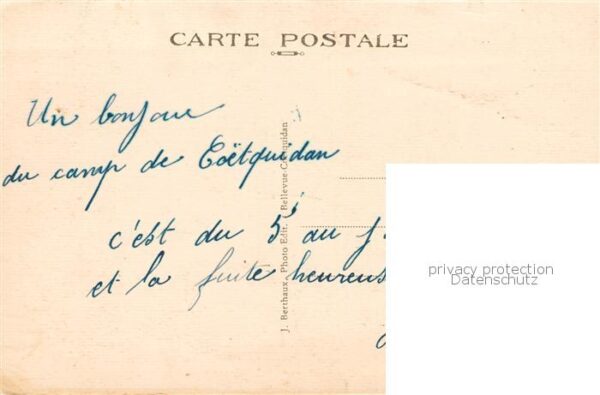 CARTE POSTALE
Un bonjour
du camp de Coëtquidan
c'est du 5 au j.
et la fuite heureus
J. Berthaux, Photo Edit., Bellevue-Coëtquidan
privacy protection
Datenschutz